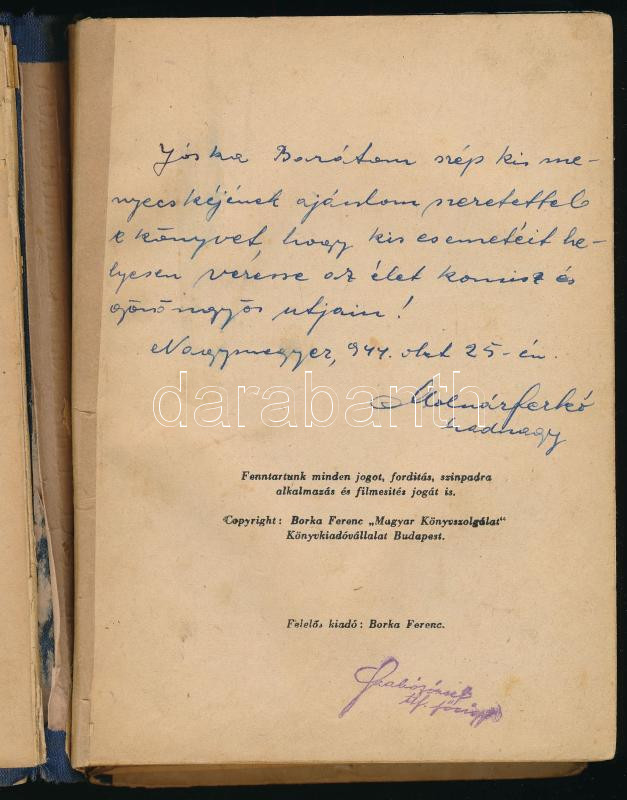 Jóska Barátom szép kis me-
nyecskéjének ajánlom szeretettel
e könyvet, hogy kis csemetéit he-
lyesen vezesse az élet komisz és
göröngyös utjain!
Nagymegyer, 944. okt 25-én.
Molnár Ferkó
hadnagy
darabanth
Fenntartunk minden jogot, forditás, szinpadra
alkalmazás és filmesités jogát is.
Copyright: Borka Ferenc „Magyar Könyvszolgálat"
Könyvkiadóvállalat Budapest.
Felelős kiadó: Borka Ferenc.
Szabó József